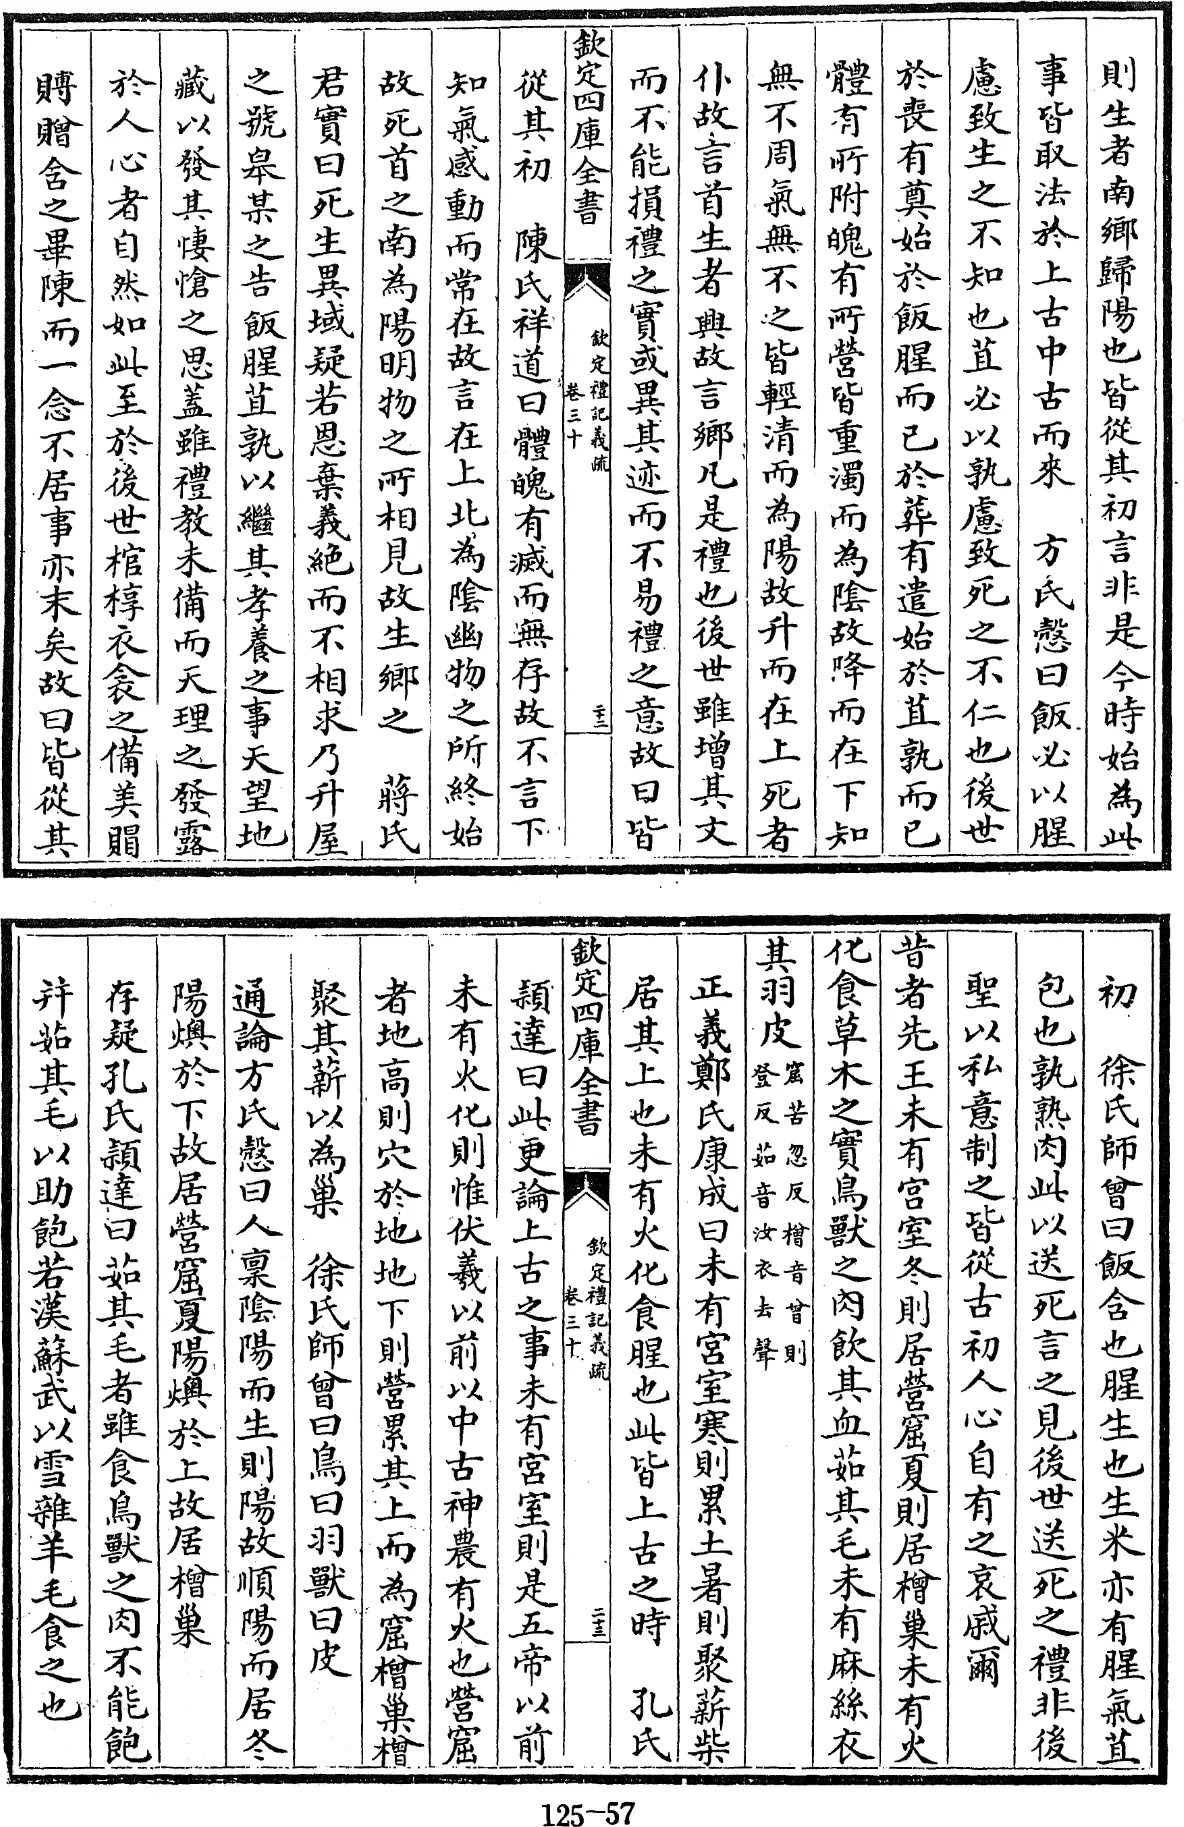 則生者南鄉歸陽也皆從其初言非是今時始為此
事皆取法於上古中古而來　方氏慤曰飯必以腥
慮致生之不知也苴必以孰慮致死之不仁也後世
於喪有奠始於飯腥而已於葬有遣始於苴孰而已
體有所附魄有所營皆重濁而為陰故降而在下知
無不周氣無不之皆輕清而為陽故升而在上死者
仆故言首生者興故言鄉凡是禮也後世雖增其文
而不能損禮之實或異其迹而不易禮之意故曰皆
欽定四庫全書
欽定禮記義疏
卷三十
二十二
從其初　陳氏祥道曰體魄有滅而無存故不言下
知氣感動而常在故言在上北為陰幽物之所終始
故死首之南為陽明物之所相見故生鄉之　蔣氏
君實曰死生異域疑若恩棄義絶而不相求乃升屋
之號皋某之告飯腥苴孰以繼其孝養之事天望地
藏以發其悽愴之思蓋雖禮教未備而天理之發露
於人心者自然如此至於後世棺椁衣衾之備美賵
賻贈含之畢陳而一念不居事亦末矣故曰皆從其
初　徐氏師曾曰飯含也腥生也生米亦有腥氣苴
包也孰熟肉此以送死言之見後世送死之禮非後
聖以私意制之皆從古初人心自有之哀戚爾
昔者先王未有宮室冬則居營窟夏則居橧巢未有火
化食草木之實鳥獸之肉飲其血茹其毛未有麻絲衣
其羽皮窟苦忽反橧音曾則
登反茹音汝衣去聲
正義鄭氏康成曰未有宮室寒則累土暑則聚薪柴
居其上也未有火化食腥也此皆上古之時　孔氏
欽定四庫全書
欽定禮記義疏
卷三十
二十三
穎達曰此更論上古之事未有宮室則是五帝以前
未有火化則惟伏羲以前以中古神農有火也營窟
者地高則穴於地地下則營累其上而為窟橧巢橧
聚其薪以為巢　徐氏師曾曰鳥曰羽獸曰皮
通論方氏慤曰人稟陰陽而生則陽故順陽而居冬
陽燠於下故居營窟夏陽燠於上故居橧巢
存疑孔氏穎達曰茹其毛者雖食鳥獸之肉不能飽
幷茹其毛以助飽若漢蘇武以雪雜羊毛食之也
125-57